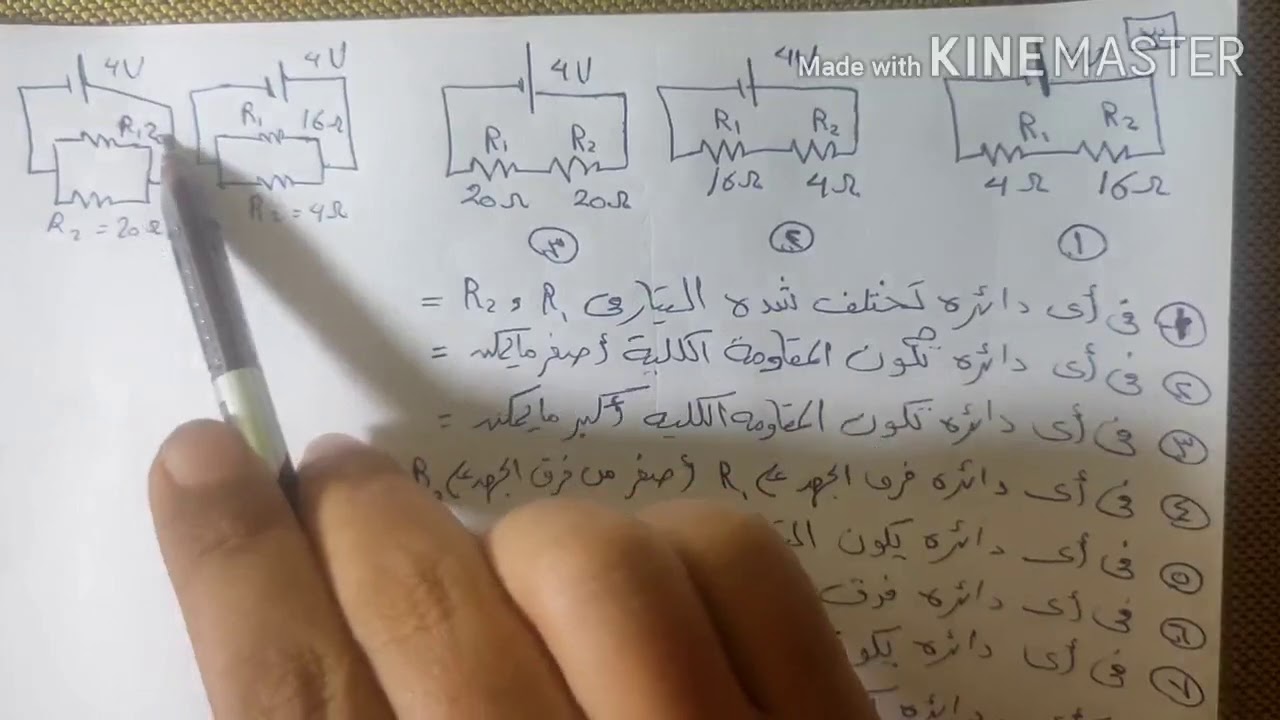 Made with KINEMASTER
4V
4V
4V
4V
R1
16Ω
R1
R2
R1
R2
R1
R2
R2 = 20Ω
R2 = 4Ω
20Ω
20Ω
16Ω
4Ω
4Ω
16Ω
٣
٢
١
فى أى دائره تختلف شده التيار فى R1 و R2 =
٢ فى أى دائره تكون المقاومة الكلية أصغر مايمكن =
٣ فى أى دائره تكون المقاومة الكلية أكبر مايمكن =
٤ فى أى دائره فرق الجهد على R1 أصغر من فرق الجهد على R2
٥ فى أى دائره يكون
٦ فى أى دائره فرق
٧ فى أى دائره يكون
دائره